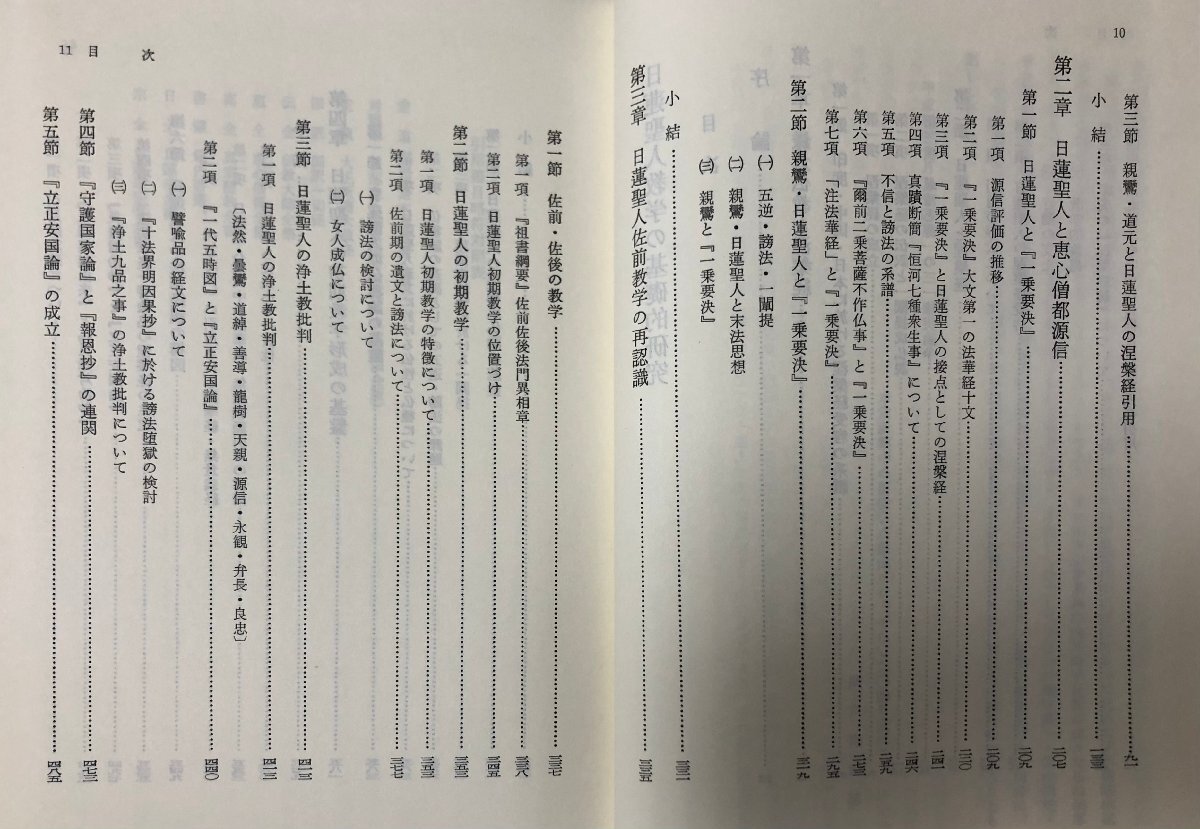 10
第三節　親鸞・道元と日蓮聖人の涅槃経引用……九一
小　結……
第二章　日蓮聖人と恵心僧都源信……二〇七
第一節　日蓮聖人と『一乗要決』……二〇九
第一項　源信評価の推移……二〇九
第二項　『一乗要決』大文第一の法華経十文……
第三項　『一乗要決』と日蓮聖人の接点としての涅槃経……二四一
第四項　真蹟断簡『恒河七種衆生事』について……二四六
第五項　不信と謗法の系譜……二五九
第六項　『爾前二乗菩薩不作仏事』と『一乗要決』……二七三
第七項　「注法華経」と『一乗要決』……二九五
第二節　親鸞・日蓮聖人と『一乗要決』……三一九
㈠　五逆・謗法・一闡提
㈡　親鸞・日蓮聖人と末法思想
㈢　親鸞と『一乗要決』
小　結……
第三章　日蓮聖人佐前教学の再認識……三三五
11　目　次
第一節　佐前・佐後の教学……三三七
第一項　『祖書綱要』佐前佐後法門異相章……三三八
第二項　日蓮聖人初期教学の位置づけ……三四五
第二節　日蓮聖人の初期教学……三五三
第一項　日蓮聖人初期教学の特徴について……三五三
第二項　佐前期の遺文と謗法について……三七七
㈠　謗法の検討について
㈡　女人成仏について
第三節　日蓮聖人の浄土教批判……
第一項　日蓮聖人の浄土教批判……
〔法然・曇鸞・道綽・善導・龍樹・天親・源信・永観・弁長・良忠〕
第二項　『一代五時図』と『立正安国論』……四四〇
㈠　譬喩品の経文について
㈡　『十法界明因果抄』に於ける謗法堕獄の検討
㈢　『浄土九品之事』の浄土教批判について
第四節　『守護国家論』と『報恩抄』の連関……四七三
第五節　『立正安国論』の成立……四八五